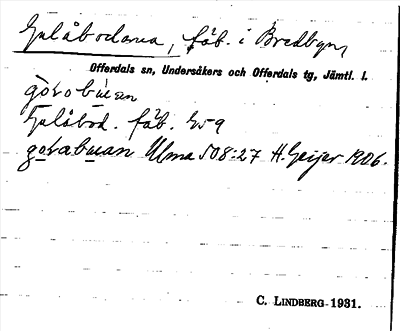 Gulåbodarna, fäb. i Bredbyn,
Offerdals sn, Undersåkers och Offerdals tg, Jämtl. l.
gorobuan
Gulåbod. fäb. G59
gorabuan Ulma 508:27 H. Geijer 1906.
C. LINDBERG 1931.